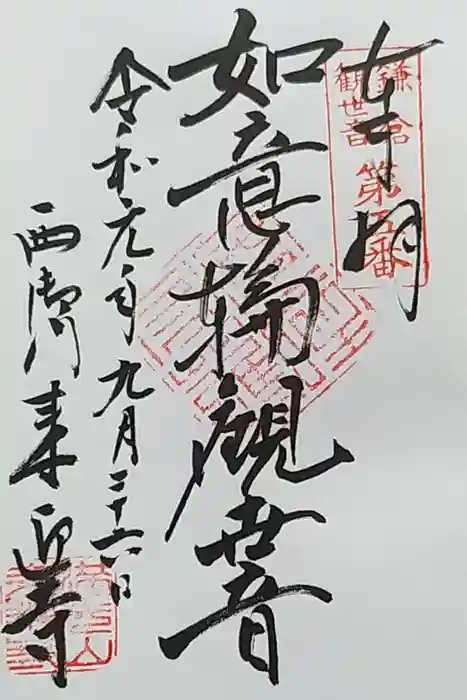 奉拝
鎌倉
観世音
第五番
如意輪觀世音
令和元年九月二十六日
西御門来迎寺